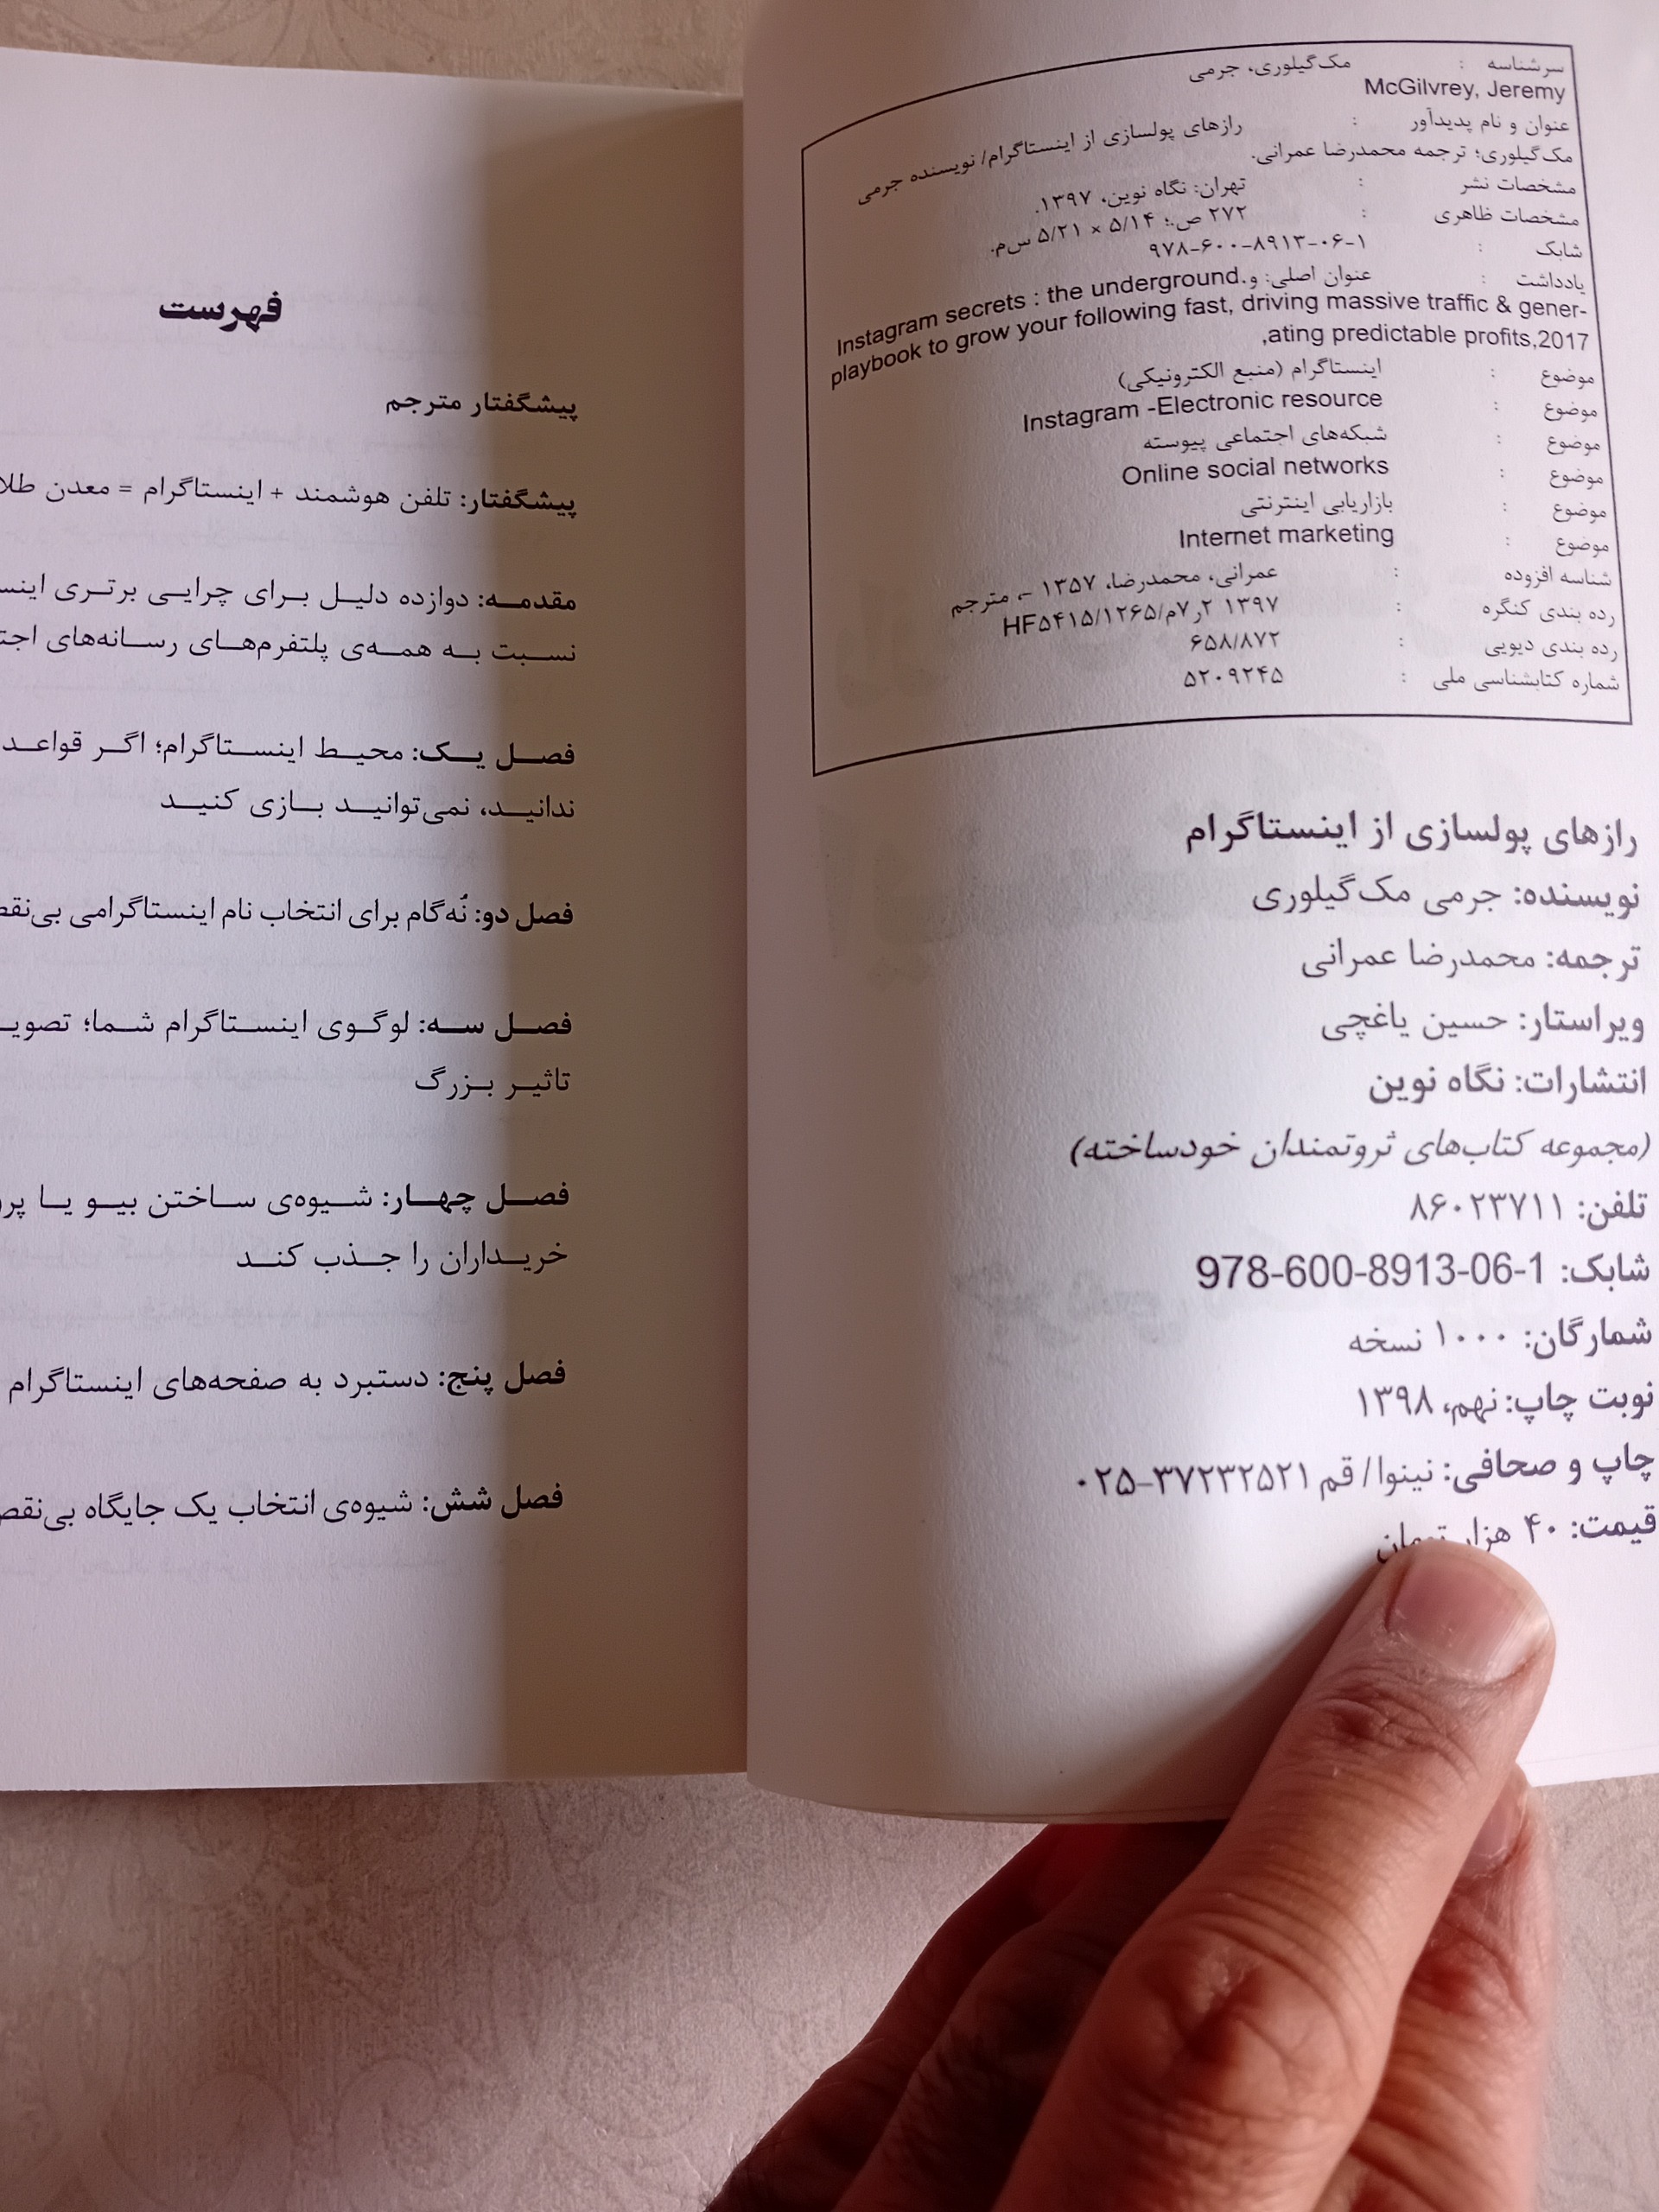 سرشناسه : مک‌گیلوری، جرمی
McGilvrey, Jeremy
عنوان و نام پدیدآور : رازهای پولسازی از اینستاگرام/ نویسنده جرمی
مک‌گیلوری؛ ترجمه محمدرضا عمرانی.
مشخصات نشر : تهران: نگاه نوین، ۱۳۹۷.
مشخصات ظاهری : ۲۷۲ ص.؛ ۵/۱۴ × ۵/۲۱ س‌م.
شابک : ۹۷۸-۶۰۰-۸۹۱۳-۰۶-۱
یادداشت : عنوان اصلی: و.Instagram secrets : the underground
playbook to grow your following fast, driving massive traffic & gener-
,ating predictable profits,2017
موضوع : اینستاگرام (منبع الکترونیکی)
موضوع : Instagram -Electronic resource
موضوع : شبکه‌های اجتماعی پیوسته
موضوع : Online social networks
موضوع : بازاریابی اینترنتی
موضوع : Internet marketing
شناسه افزوده : عمرانی، محمدرضا، ۱۳۵۷ -، مترجم
رده بندی کنگره : HF۵۴۱۵/۱۲۶۵/م۷ر۲ ۱۳۹۷
رده بندی دیویی : ۶۵۸/۸۷۲
شماره کتابشناسی ملی : ۵۲۰۹۲۴۵
رازهای پولسازی از اینستاگرام
نویسنده: جرمی مک‌گیلوری
ترجمه: محمدرضا عمرانی
ویراستار: حسین یاغچی
انتشارات: نگاه نوین
(مجموعه کتاب‌های ثروتمندان خودساخته)
تلفن: ۸۶۰۲۳۷۱۱
شابک: 978-600-8913-06-1
شمارگان: ۱۰۰۰ نسخه
نوبت چاپ: نهم، ۱۳۹۸
چاپ و صحافی: نینوا/ قم ۳۷۲۳۲۵۲۱-۰۲۵
قیمت: ۴۰ هزار تومان
فهرست
پیشگفتار مترجم
پیشگفتار: تلفن هوشمند + اینستاگرام = معدن طلا
مقدمه: دوازده دلیل برای چرایی برتری
نسبت به همه‌ی پلتفرم‌های رسانه‌های
فصل یک: محیط اینستاگرام؛ اگر قواعد
ندانید، نمی‌توانید بازی کنید
فصل دو: نُه گام برای انتخاب نام اینستاگرامی
فصل سه: لوگوی اینستاگرام شما؛
تاثیر بزرگ
فصل چهار: شیوه‌ی ساختن بیو یا
خریداران را جذب کند
فصل پنج: دستبرد به صفحه‌های اینستاگرام
فصل شش: شیوه‌ی انتخاب یک جایگاه